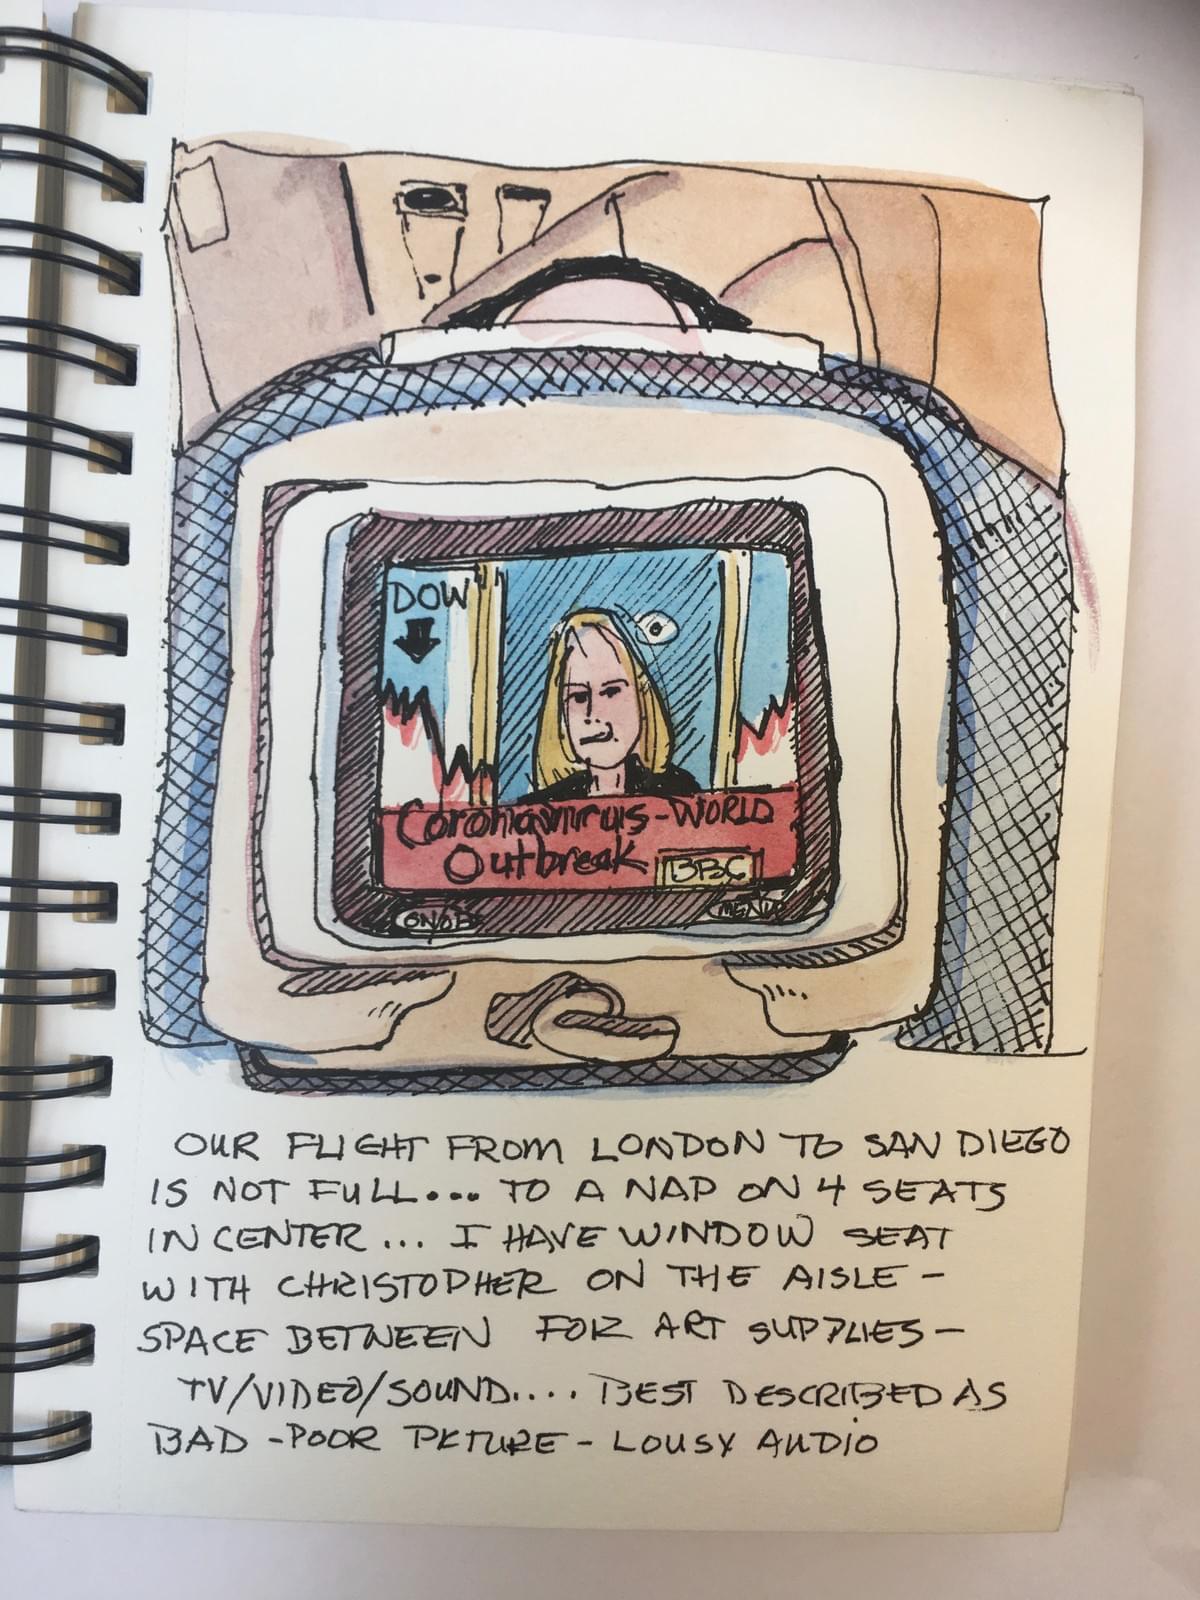 DOW
Coronavirus - WORLD
Outbreak BBC
ON/OFF MENU
OUR FLIGHT FROM LONDON TO SAN DIEGO
IS NOT FULL... TO A NAP ON 4 SEATS
IN CENTER... I HAVE WINDOW SEAT
WITH CHRISTOPHER ON THE AISLE -
SPACE BETWEEN FOR ART SUPPLIES -
TV/VIDEO/SOUND.... BEST DESCRIBED AS
BAD - POOR PICTURE - LOUSY AUDIO